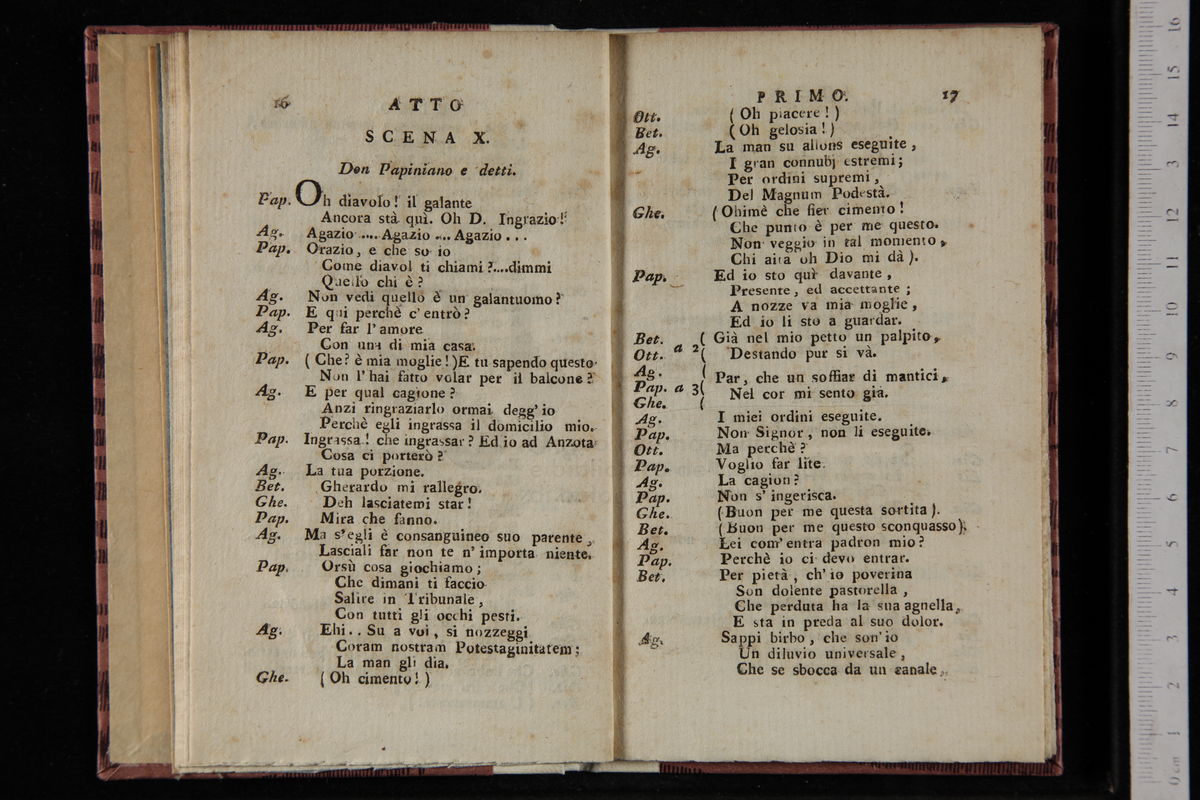 16
ATTO
SCENA X.
Don Papiniano e detti.
Pap. Oh diavolo! il galante
Ancora stà quì. Oh D. Ingrazio!
Ag. Agazio.... Agazio.... Agazio...
Pap. Orazio, e che so io
Come diavol ti chiami?....dimmi
Quello chi è?
Ag. Non vedi quello è un galantuomo?
Pap. E qui perchè c'entrò?
Ag. Per far l'amore
Con una di mia casa.
Pap. (Che? è mia moglie!)E tu sapendo questo
Non l'hai fatto volar per il balcone?
Ag. E per qual cagione?
Anzi ringraziarlo ormai degg'io
Perchè egli ingrassa il domicilio mio.
Pap. Ingrassa! che ingrassar? Ed io ad Anzota
Cosa ci porterò?
Ag. La tua porzione.
Bet. Gherardo mi rallegro.
Ghe. Deh lasciatemi star!
Pap. Mira che fanno.
Ag. Ma s'egli è consanguineo suo parente,
Lasciali far non te n'importa niente.
Pap. Orsù cosa giochiamo;
Che dimani ti faccio
Salire in Tribunale,
Con tutti gli occhi pesti.
Ag. Ehi.. Su a voi, si nozzeggi
Coram nostram Potestaginitatem;
La man gli dia.
Ghe. (Oh cimento!)
PRIMO.
17
Ott. (Oh piacere!)
Bet. (Oh gelosia!)
Ag. La man su allons eseguite,
I gran connubj estremi;
Per ordini supremi,
Del Magnum Podestà.
Ghe. (Ohimè che fier cimento!
Che punto è per me questo.
Non veggio in tal momento,
Chi aita oh Dio mi dà).
Pap. Ed io sto quì davante,
Presente, ed accettante;
A nozze va mia moglie,
Ed io li sto a guardar.
Bet. ( Già nel mio petto un palpito,
Ott. a 2( Destando pur si và.
Ag. (
Pap. a 3( Par, che un soffiar di mantici,
Ghe. ( Nel cor mi sento già.
Ag. I miei ordini eseguite.
Pap. Non Signor, non li eseguite.
Ott. Ma perchè?
Pap. Voglio far lite.
Ag. La cagion?
Pap. Non s'ingerisca.
Ghe. (Buon per me questa sortita).
Bet. (Buon per me questo sconquasso).
Ag. Lei com'entra padron mio?
Pap. Perchè io ci devo entrar.
Bet. Per pietà, ch'io poverina
Son dolente pastorella,
Che perduta ha la sua agnella,
E sta in preda al suo dolor.
Ag. Sappi birbo, che son'io
Un diluvio universale,
Che se sbocca da un canale,
0 cm 1 2 3 4 5 6 7 8 9 10 11 12 13 14 15 16